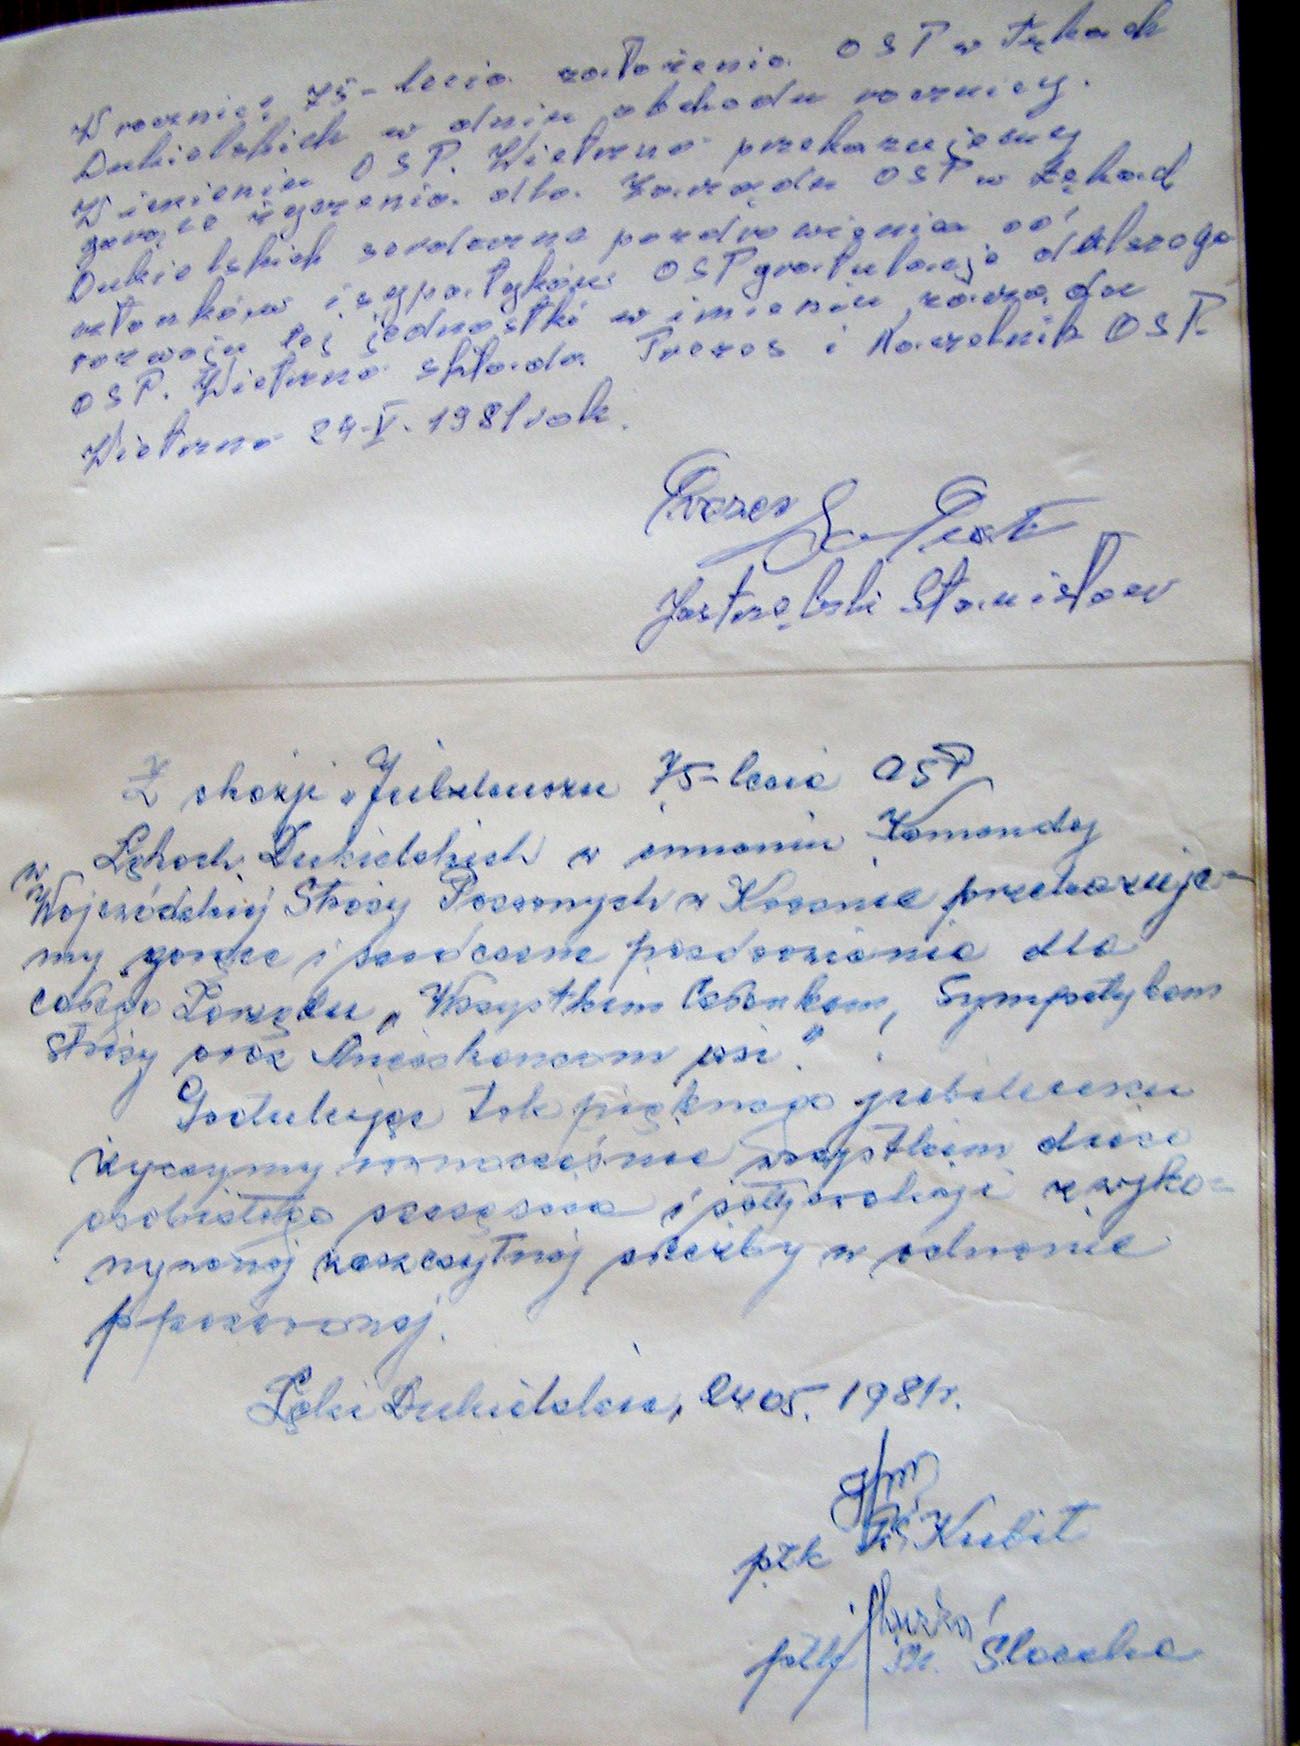 W rocznicę 75-lecia założenia OSP w Łękach
Dukielskich w dniu obchodu rocznicy.
W imieniu OSP. Wietrzno przekazujemy
gorące życzenia dla Zarządu OSP w Łękach
Dukielskich serdeczne pozdrowienia od
członków i sympatyków OSP gratulacje dalszego
rozwoju tej jednostki w imieniu zarządu
OSP. Wietrzno składa Prezes i Naczelnik OSP.
Wietrzno 24-V-1981 rok.
Prezes
Jastrzębski Stanisław
Z okazji "Jubileuszu 75-lecia OSP
w Łękach Dukielskich w imieniu Komendy
Wojewódzkiej Straży Pożarnych w Krośnie przekazuje-
my gorące i serdeczne pozdrowienia dla
całego Zarządu, Wszystkim Członkom, Sympatykom
Straży oraz Mieszkańcom wsi."
Gratulując tak pięknego jubileuszu
życzymy równocześnie wszystkim dużo
osobistego szczęścia i satysfakcji z wyko=
nywanej zaszczytnej służby w ochronie
p pożarowej.
Łęki Dukielskie, 24 05. 1981 r.
płk Kubit
St. Ślączka